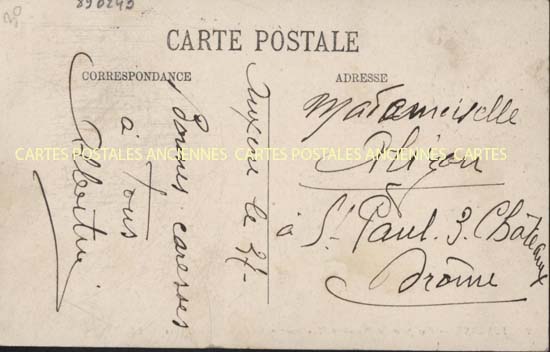 890249
CARTE POSTALE
CORRESPONDANCE
ADRESSE
le 27-
Bonnes caresses
à Tous
Albertine
Mademoiselle
Alizon
à St Paul. 3. Châteaux
Drôme
CARTES POSTALES ANCIENNES CARTES POSTALES ANCIENNES CARTES